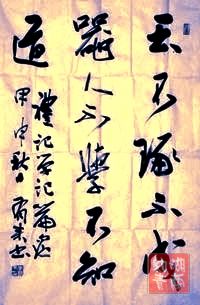 玉不琢不成
器人不學不知
道
禮記学記篇
甲申
书